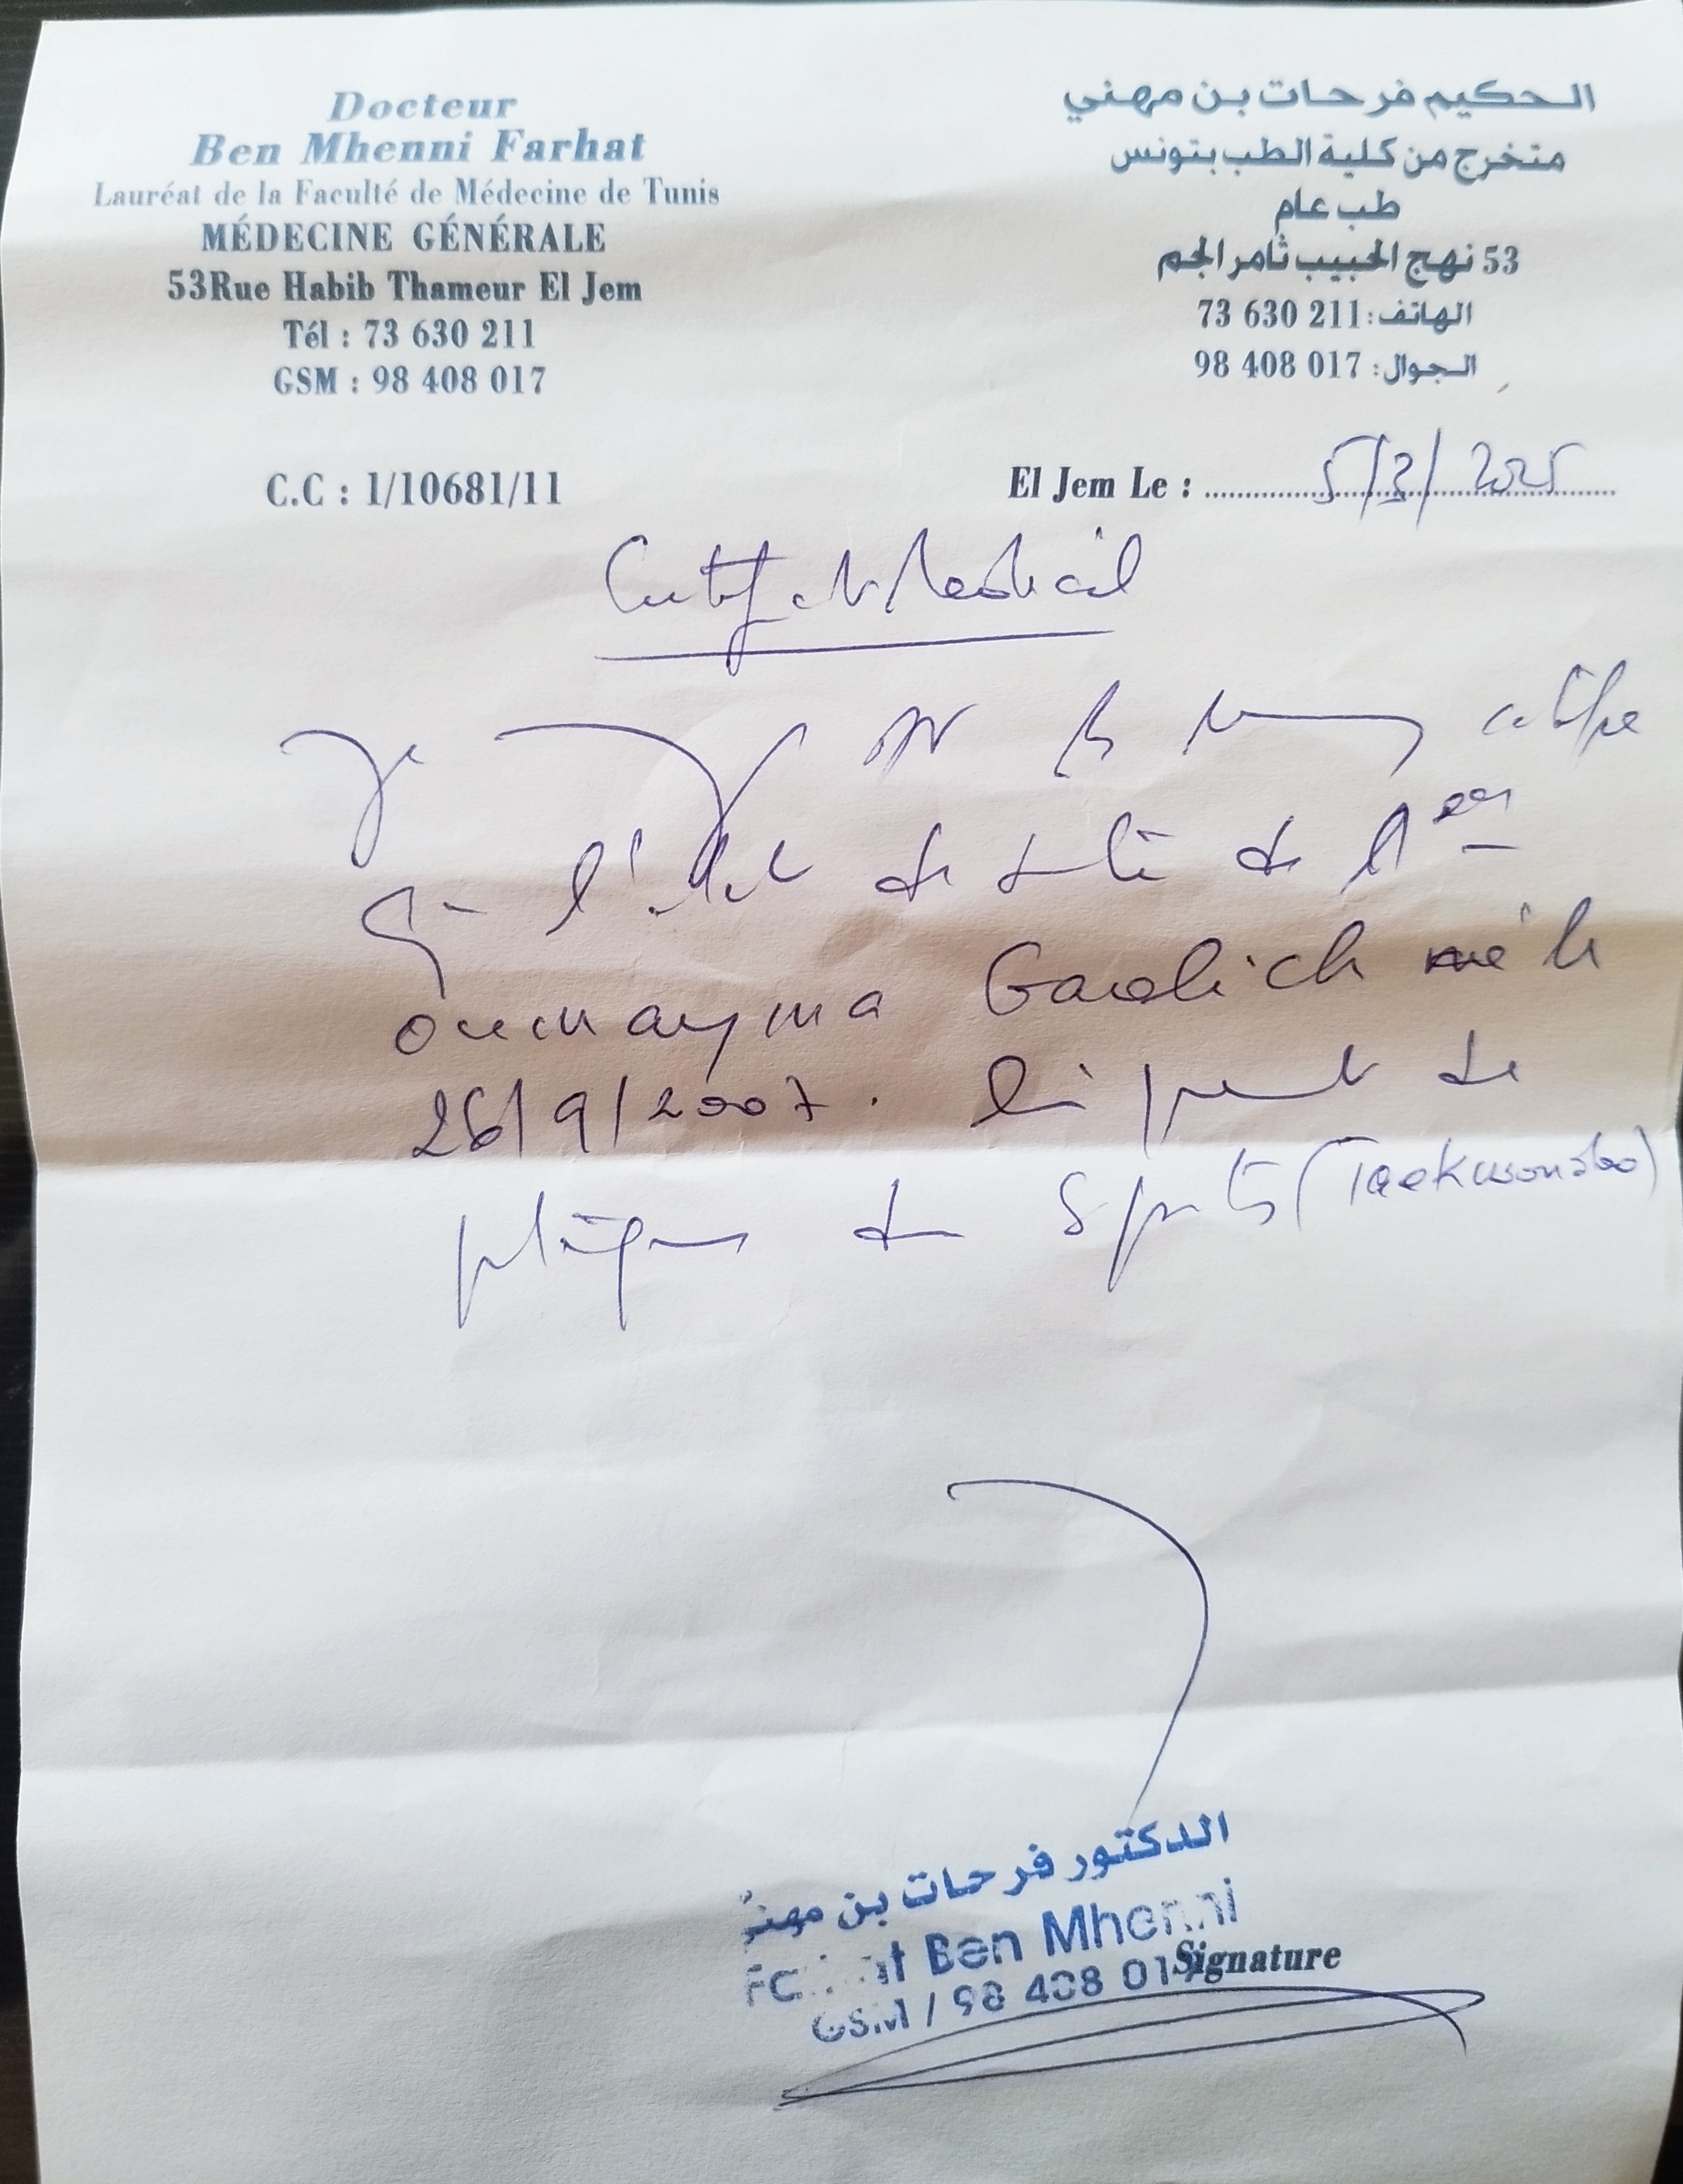 Docteur
Ben Mhenni Farhat
Lauréat de la Faculté de Médecine de Tunis
MÉDECINE GÉNÉRALE
53Rue Habib Thameur El Jem
Tél : 73 630 211
GSM : 98 408 017
C.C : 1/10681/11
الحكيم فرحات بن مهني
متخرج من كلية الطب بتونس
طب عام
53 نهج الحبيب ثامر الجم
الهاتف: 211 630 73
الجوال: 017 408 98
El Jem Le : 5/3/2025
Certificat Medical
Je
que l'état de santé de
oumayma Gaolich né le
26/9/2007. lui permet de
pratiquer du Sports (Taekwondo)
الدكتور فرحات بن مهني
Ben Mhenni
GSM / 98 408 017
Signature